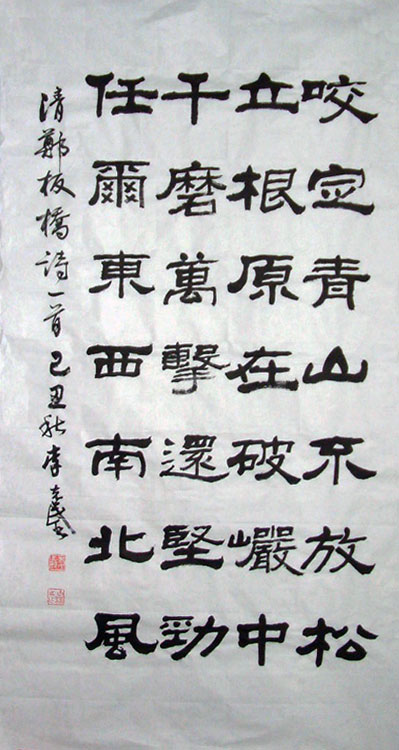 咬定青山不放松
立根原在破巗中
千磨萬擊還堅勁
任爾東西南北風
清鄭板橋詩一首己丑秋李